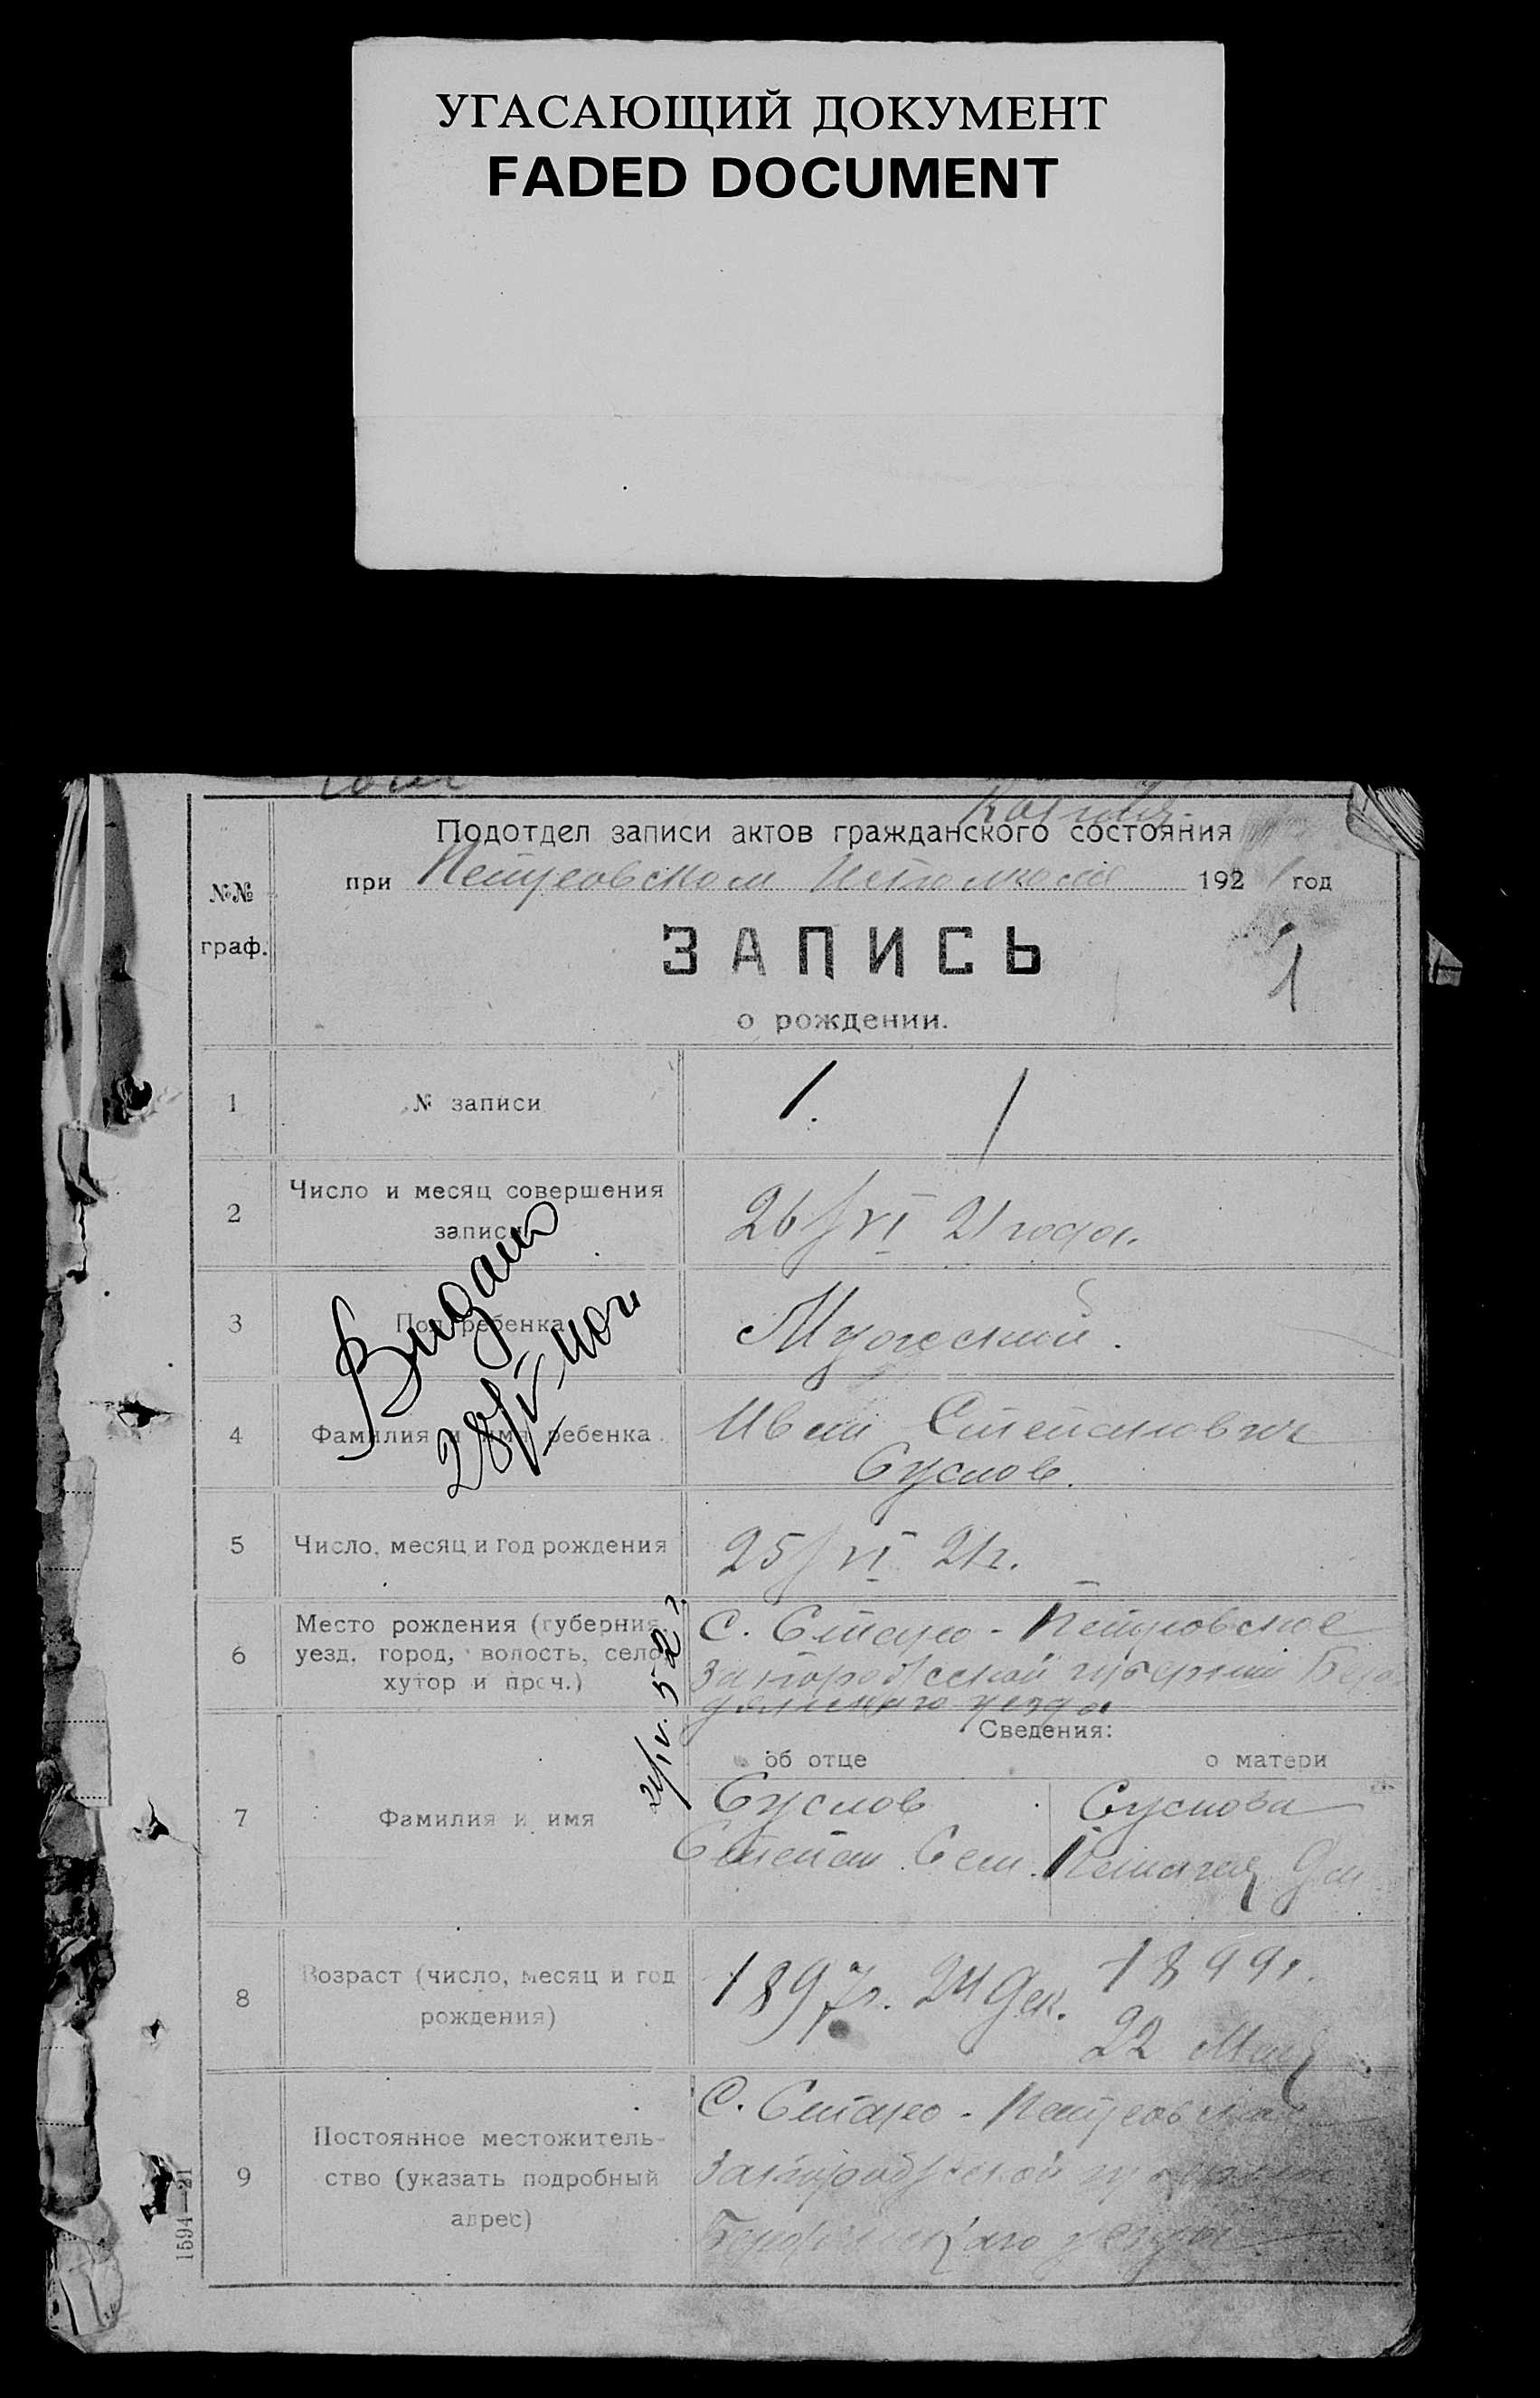 УГАСАЮЩИЙ ДОКУМЕНТ
FADED DOCUMENT
Подотдел записи актов гражданского состояния
при Петровском Исполкоме 1921 год
№№
граф.
ЗАПИСЬ
1
о рождении.
1 № записи 1. 1
2 Число и месяц совершения
записи 26/VI 21 года.
3 Пол ребенка Мужеский.
Видано
28/V-40 г.
4 Фамилия и имя ребенка. Иван Степанович
Суслов.
5 Число, месяц и год рождения 25/VI 21г.
6 Место рождения (губерния,
уезд, город, волость, село,
хутор и проч.)
С. Старо-Петровское
Запорожской губернии
уезда
Сведения:
об отце о матери
7 Фамилия и имя
Суслов
Степан Сем.
Суслова
Пелагея
8 Возраст (число, месяц и год
рождения)
1897г. 24 Дек.
1899г.
22 Мая
9 Постоянное местожитель-
ство (указать подробный
адрес)
С. Старо-Петровское
Запорожской губернии
Бердянского уезда
1594—21